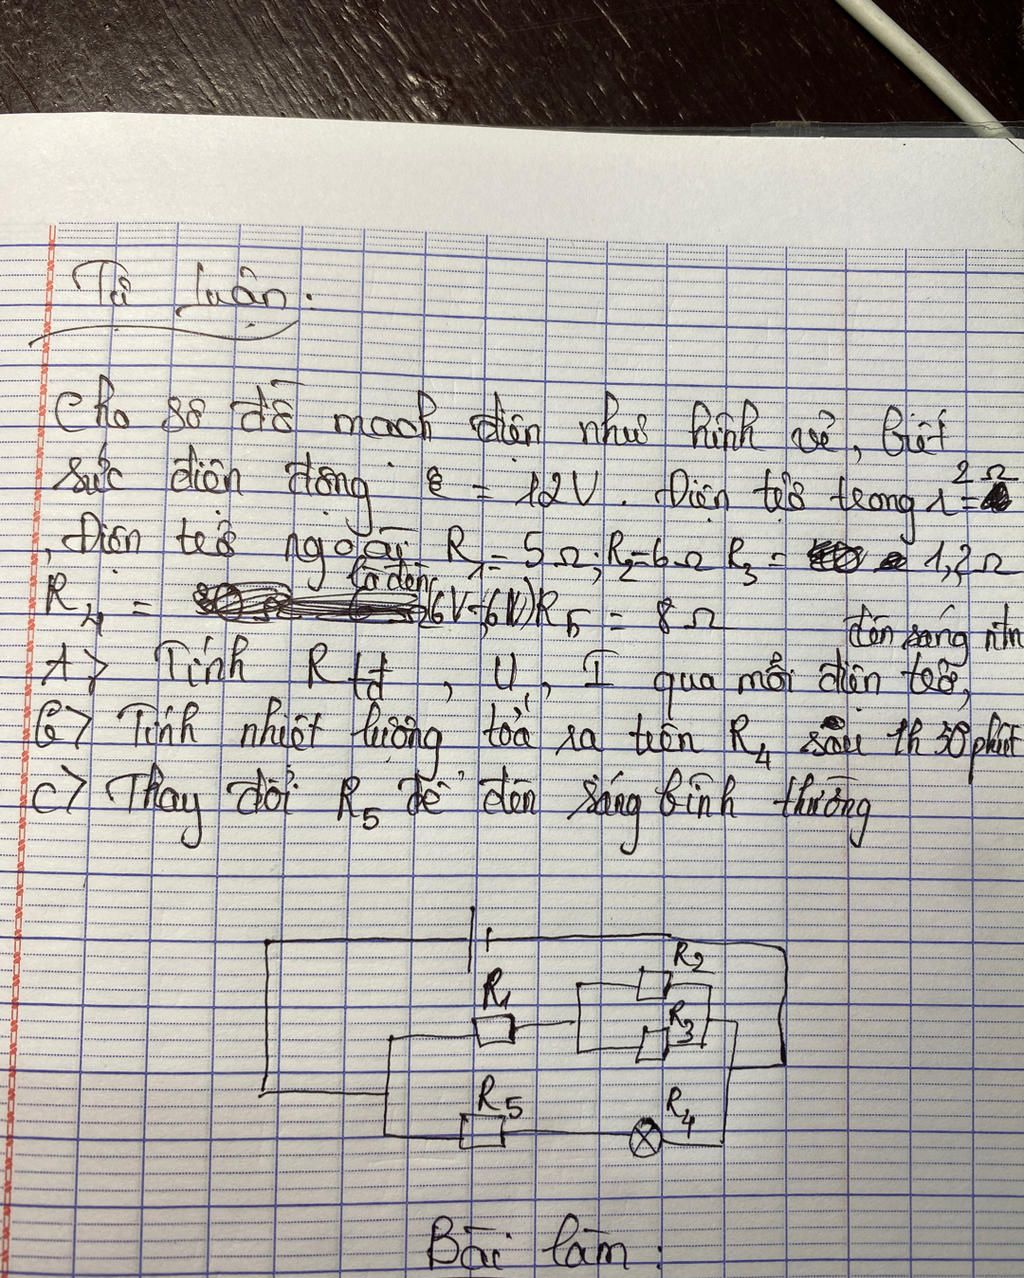 Tự luận.
Cho sơ đồ mạch điện như hình vẽ, biết
sức điện động ε = 12V. Điện trở trong r = 2Ω
, Điện trở ngoài R1 = 5Ω; R2=6Ω R3 = 1,2Ω
R4 = là đèn (6V-6W) R5 = 8Ω
đèn sáng ntn
A> Tính Rtđ, U, I qua mỗi điện trở,
B> Tính nhiệt lượng toả ra trên R4 sau th 30 phút
C> Thay đổi R5 để đèn sáng bình thường
R2
R1
R3
R5
R4
Bài làm: